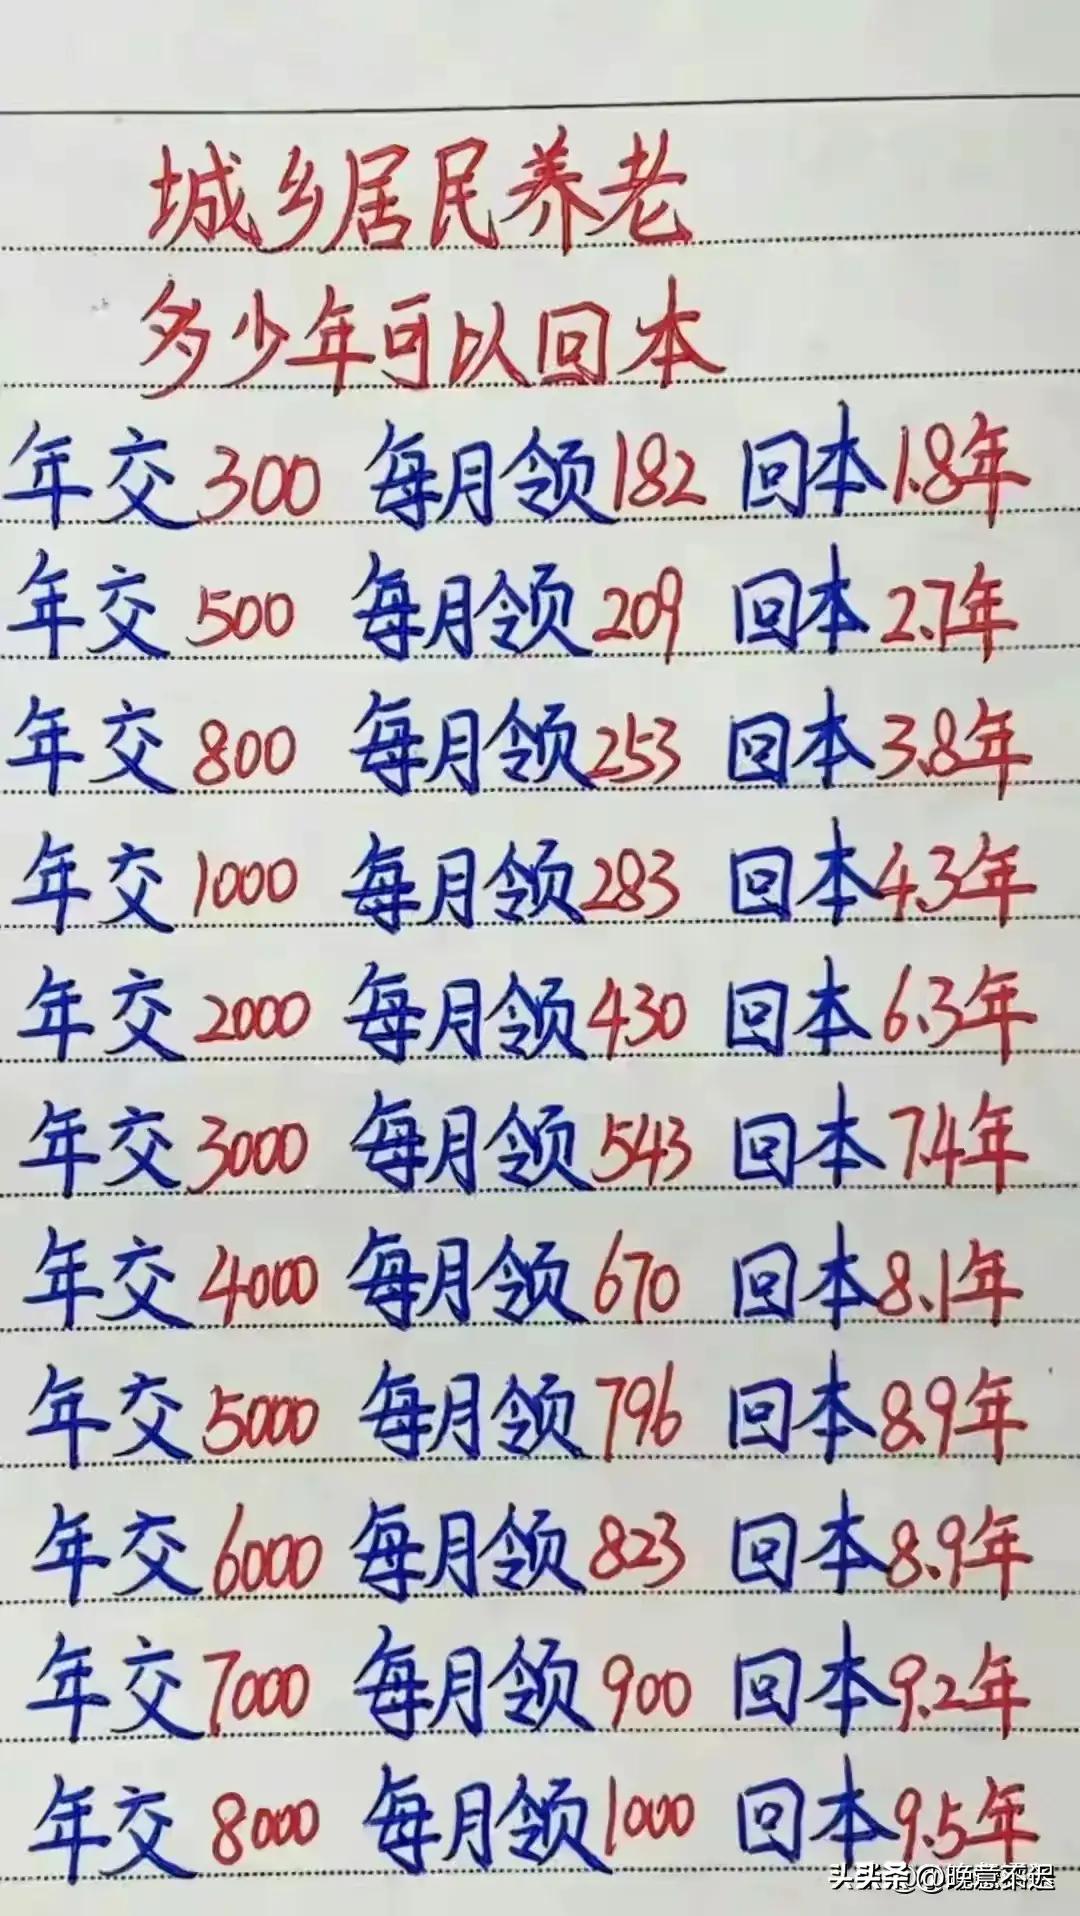 城乡居民养老
多少年可以回本
年交300 每月领182 回本1.8年
年交500 每月领209 回本2.7年
年交800 每月领253 回本3.8年
年交1000 每月领283 回本4.3年
年交2000 每月领430 回本6.3年
年交3000 每月领543 回本7.4年
年交4000 每月领670 回本8.1年
年交5000 每月领796 回本8.9年
年交6000 每月领823 回本8.9年
年交7000 每月领900 回本9.2年
年交8000 每月领1000 回本9.5年